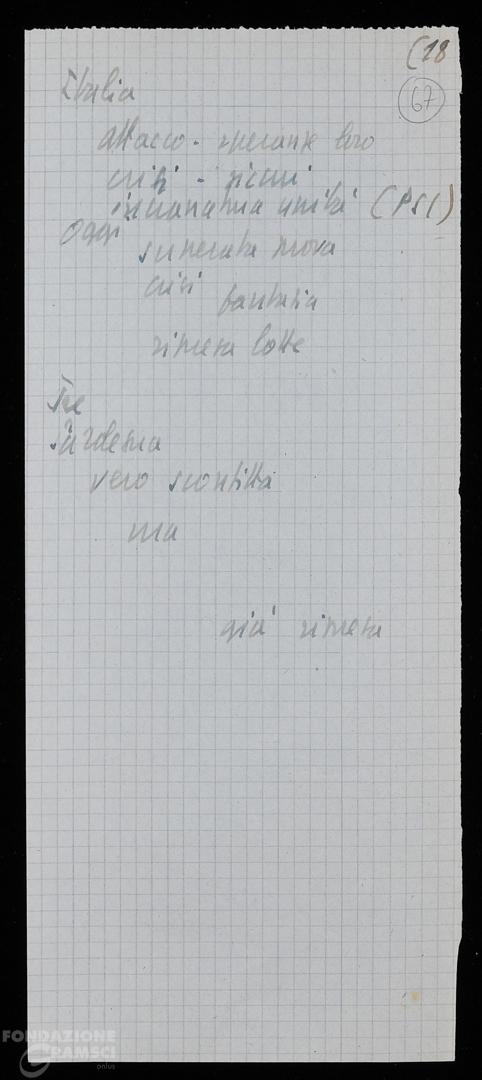 (18
67
Italia
attacco - speranze loro
crisi - sicuri
salvaguardia unità (PSI)
Oggi
superata prova
crisi fantasia
ripresa lotte
Tre
Sardegna
vero sconfitta
ma
già ripresa
FONDAZIONE
GRAMSCI
onlus